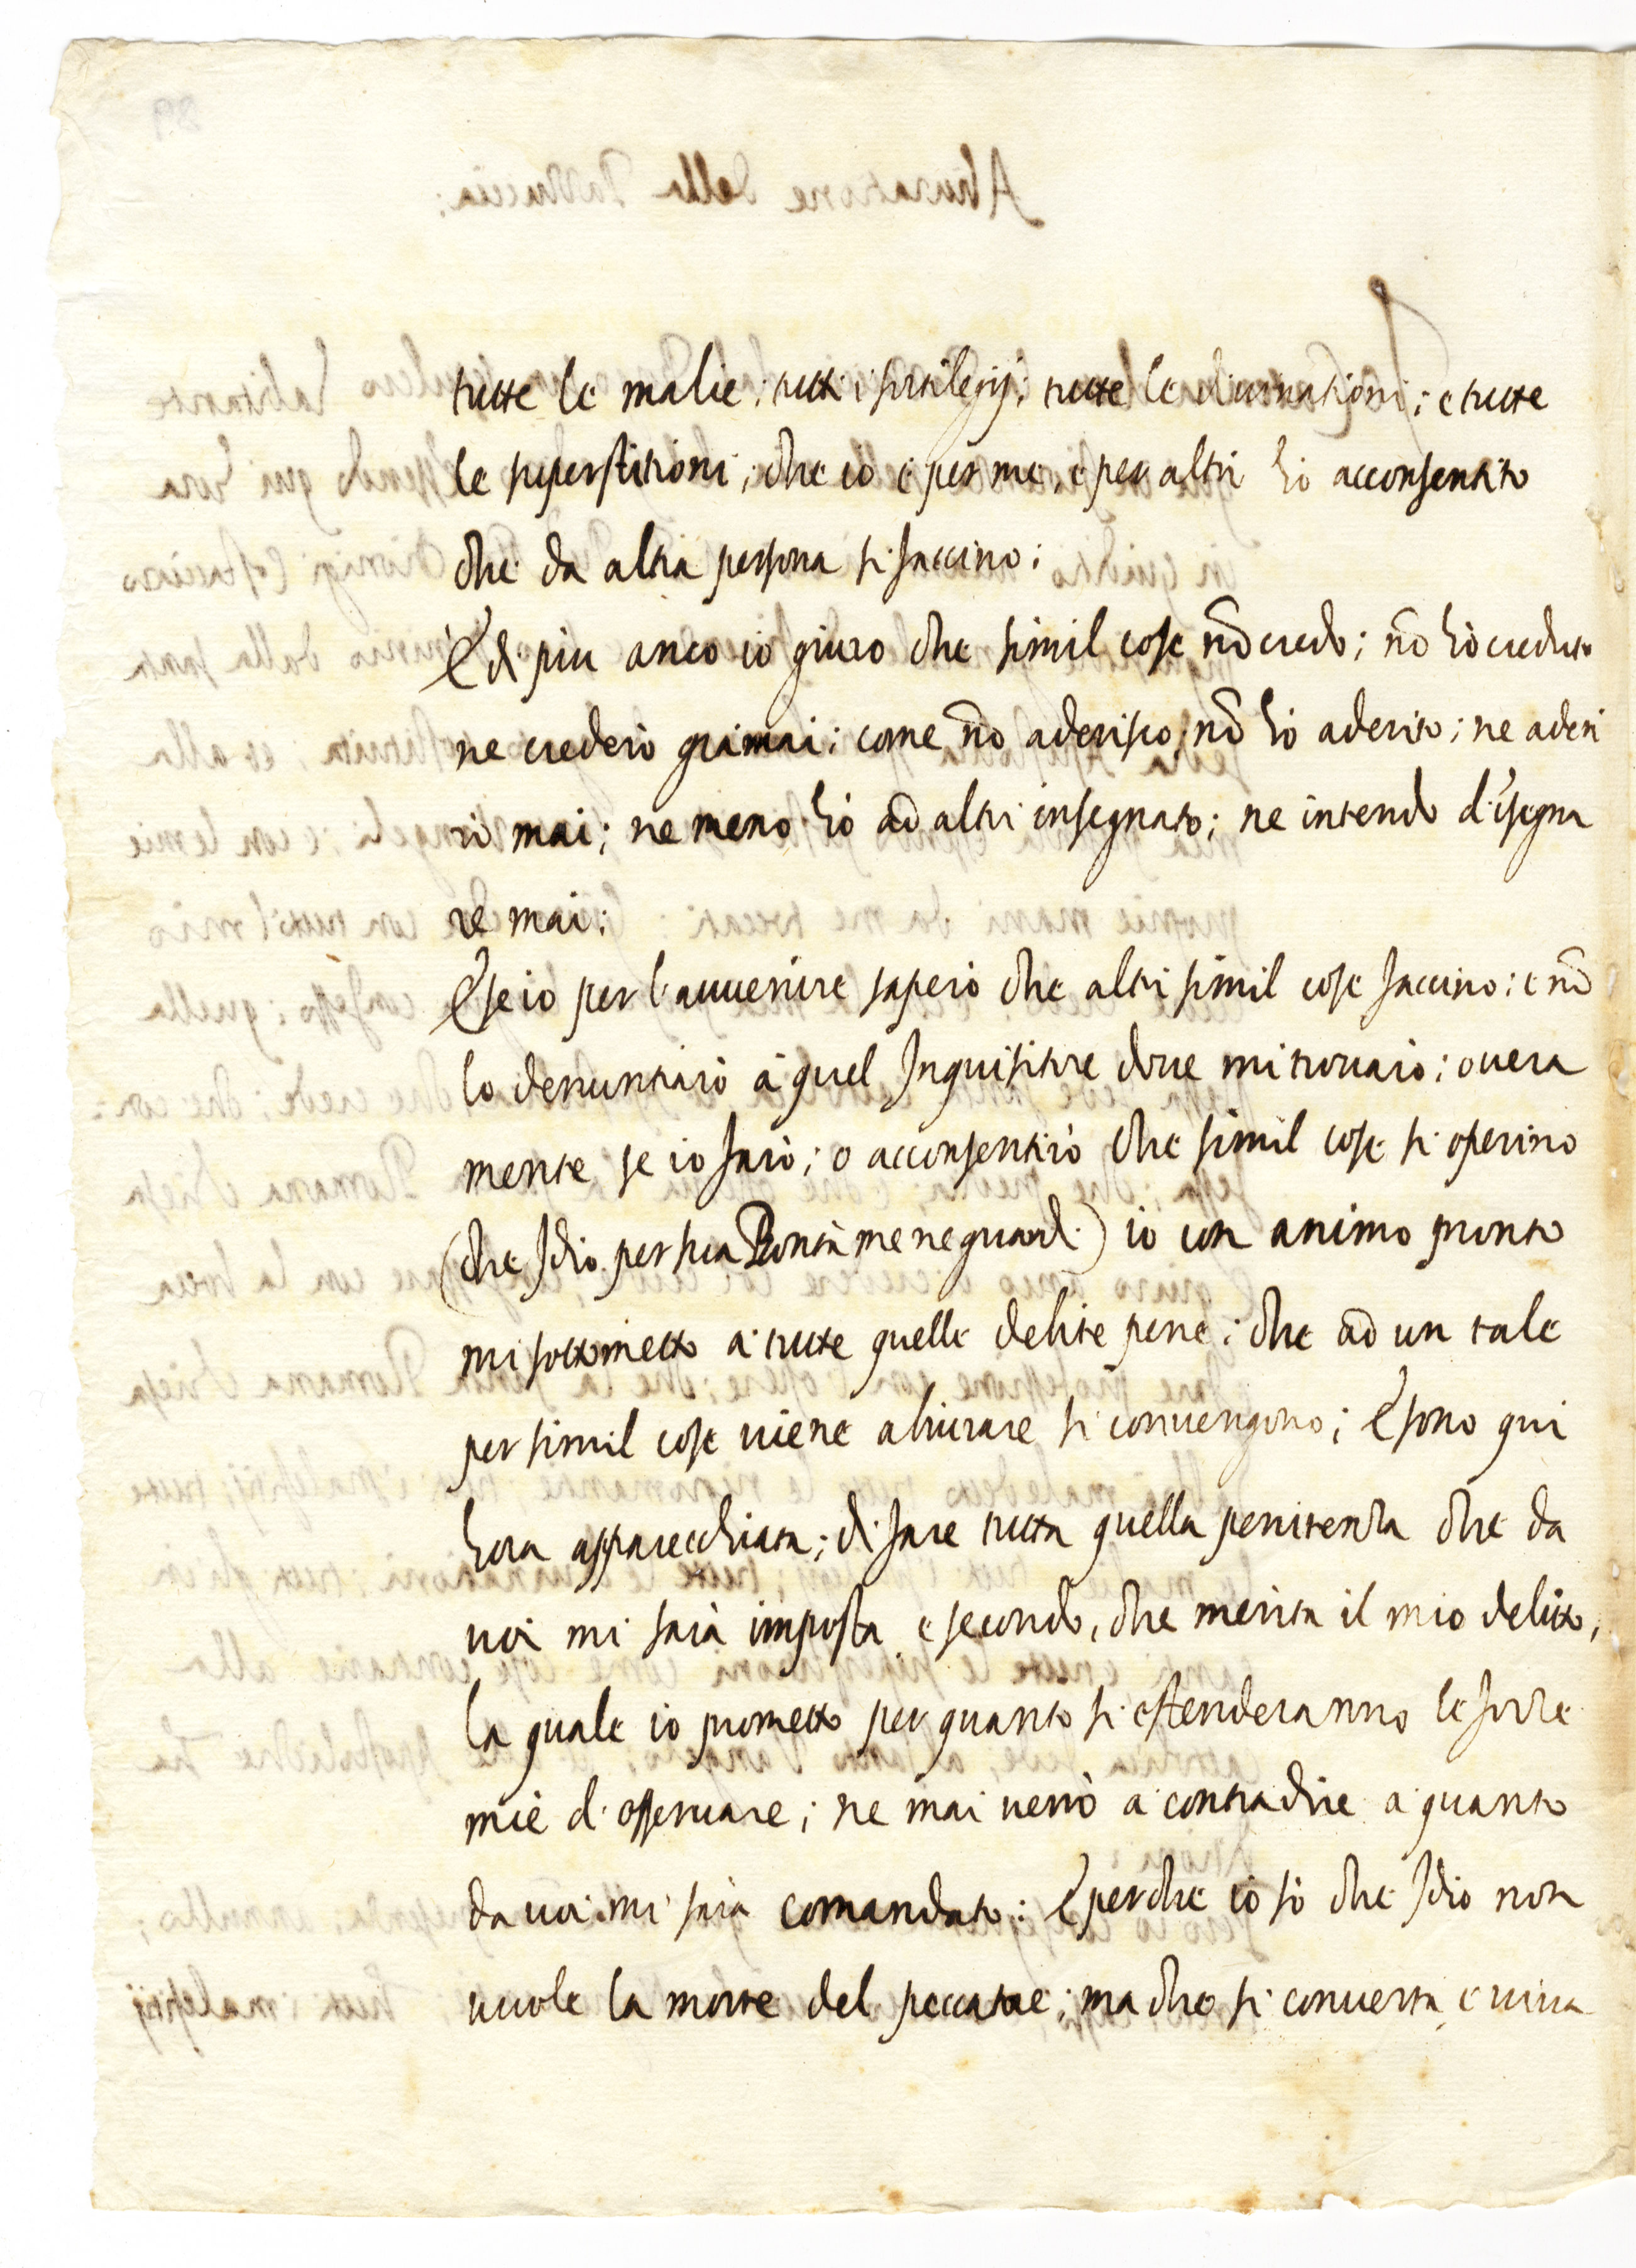 tutte le malie; tutti i sortilegij; tutte le divinationi; e tutte
le superstitioni; che io e per me, e per altri hò acconsentito
che da altra persona si faccino;
E di piu anco io giuro che simil cose nõ credo; nõ hò creduto
ne crederò giamai; come nõ aderisco; nõ hò aderito; ne aderi
rò mai; ne meno hò ad altri insegnato; ne intendo d'isegna
re mai;
E se io per l'auuenire saperò che altri simil cose faccino; e nõ
lo denuntiarò à quel Inquisitore doue mi trouarò; ouera
mente se io farò; o acconsentirò che simil cose si operino
(che Idio per sua Bontà me ne guardi) io con animo pronto
mi sottometto à tutte quelle debite pene; che ad un tale
per simil cose uiene abiurare si conuengono; E sono qui
hora apparecchiata; di fare tutta quella penitenza che da
uoi mi sarà imposta e secondo, che merita il mio delitto,
la quale io prometto per quanto si estenderanno le forze
mie d'osseruare; ne mai uerrò a contradire a quanto
da uoi mi sarà comandato: E perche io sò che Idio non
uuole la morte del peccatore; ma che si conuerta e uiua